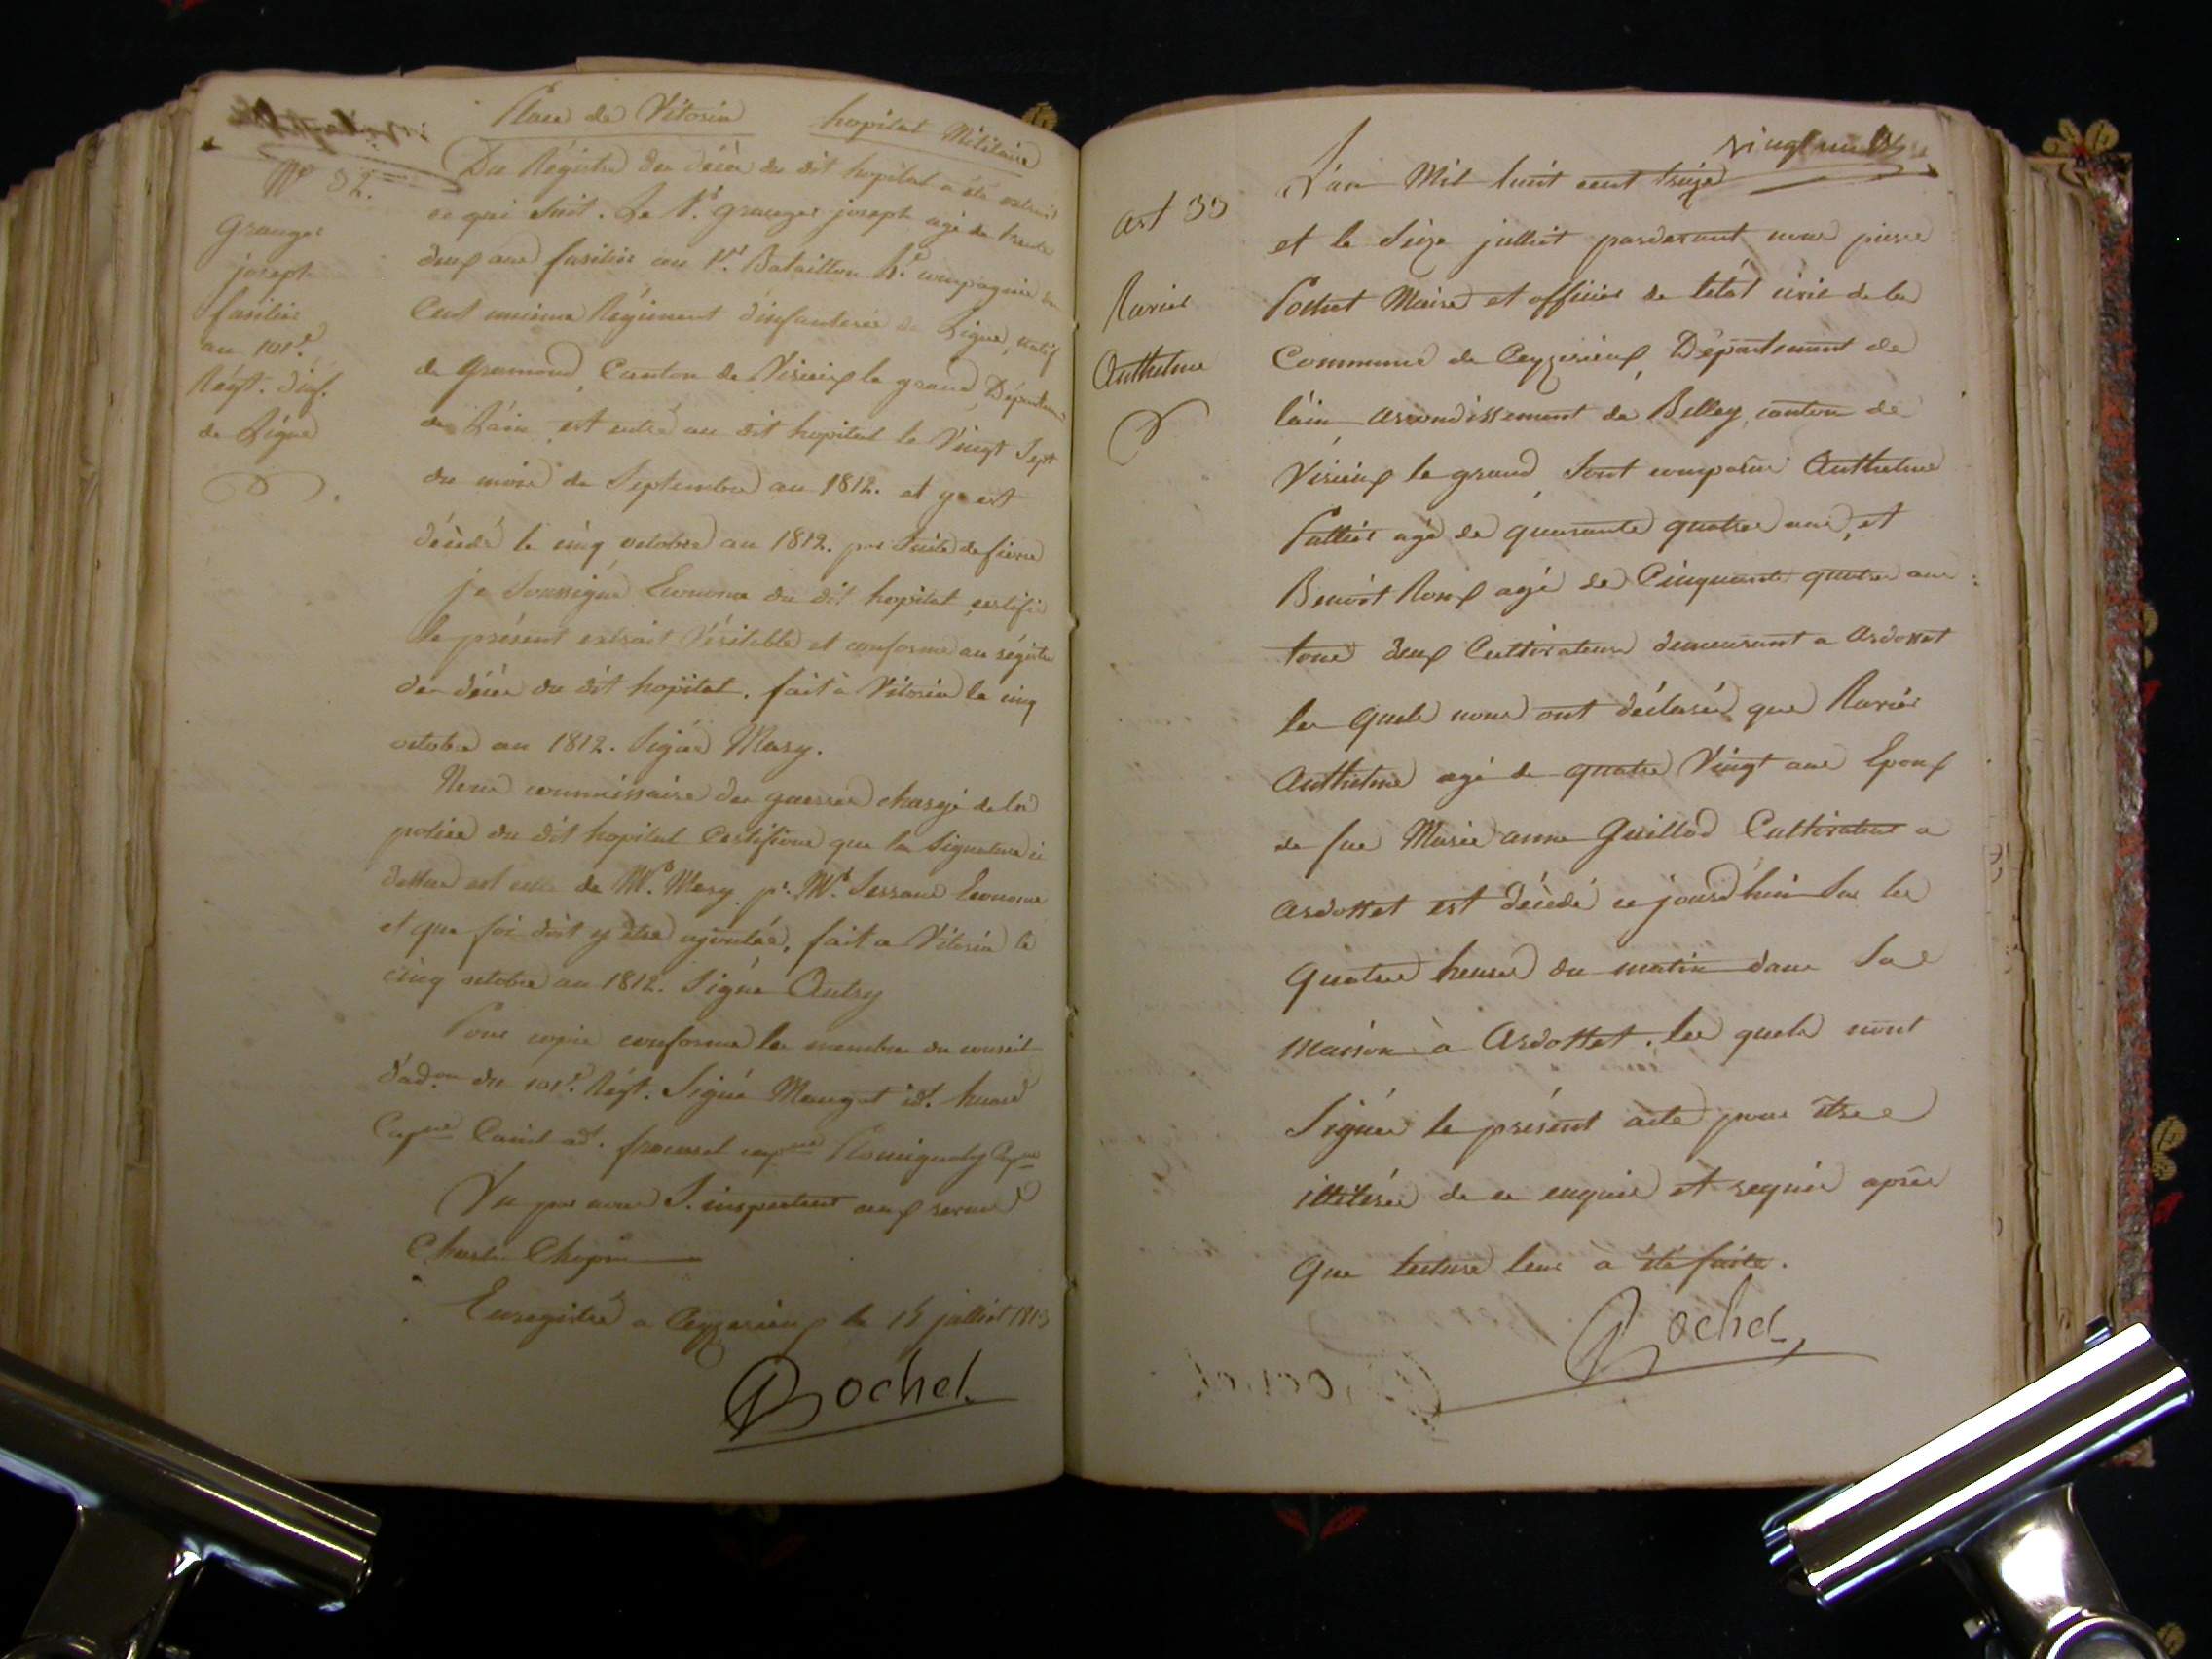 Place de Vitoria hopital Militaire
N° 32.
Granger
joseph
fusilier
au 101e.
Régt. d'inf.
de Ligne
Du Régistre des décès du dit hopital a été extrait
ce qui suit. Le Sr. granger joseph agé de trente
deux ans fusilier au 1er. Bataillon 4e. compagnie du
Cent unieme Régiment d'infanterie de Ligne, natif
de gramond, Canton de Virieux le grand, Département
de Láin est entré au dit hopital le Vingt Sept
du mois de Septembre an 1812. et y est
décédé le cinq octobre an 1812. par Suite de fievre
je Soussigné Econome du dit hopital certifie
le présent extrait Véritable et conforme au régistre
des décès du dit hopital. fait à Vitoria le cinq
octobre an 1812. Signé Mary.
Nous commissaire des guerres chargé de la
police du dit hopital Certifions que la Signature ci
dessus est celle de Mr. Mary pr. Mr. Econome
et que foi doit y être ajoutée. fait a Vitoria le
cinq octobre an 1812. Signé Autry
Pour copie conforme les membres du conseil
d'adon du 101e. Régt. Signé Mauget
Vu par nous S. inspecteur aux revues
Charles
Enregitré a Ceyzerieux le 15 julliet 1813
Pochet
vingt
art 33
Ravier
Anthelme
L'an Mil huit cent treize
et le Sieze julliet pardevant nous pierre
Pochet Maire et officier de l'etát civil de la
Commune de Ceyzerieux, Département de
láin arrondissement de Belley, canton de
Virieux le grand, Sont comparus Anthelme
Pallier agé de quarante quatre ans, et
Benoit Roux agé de Cinquante quatre ans
tous deux Cultivateurs demeurant a Ardosset
les quels nous ont déclarés que Ravier
Anthelme agé de quatre Vingt ans Epoux
de fue Marie anne Guillod Cultivateur a
Ardosset est décédé ce jourd'hui Sur les
quatre heures du matin dans Sa
maison à Ardosset. les quels n'ont
Signés le présent acte pour être
illiterés de ce enquis et requis après
que lecture leur à été faite.
Pochet